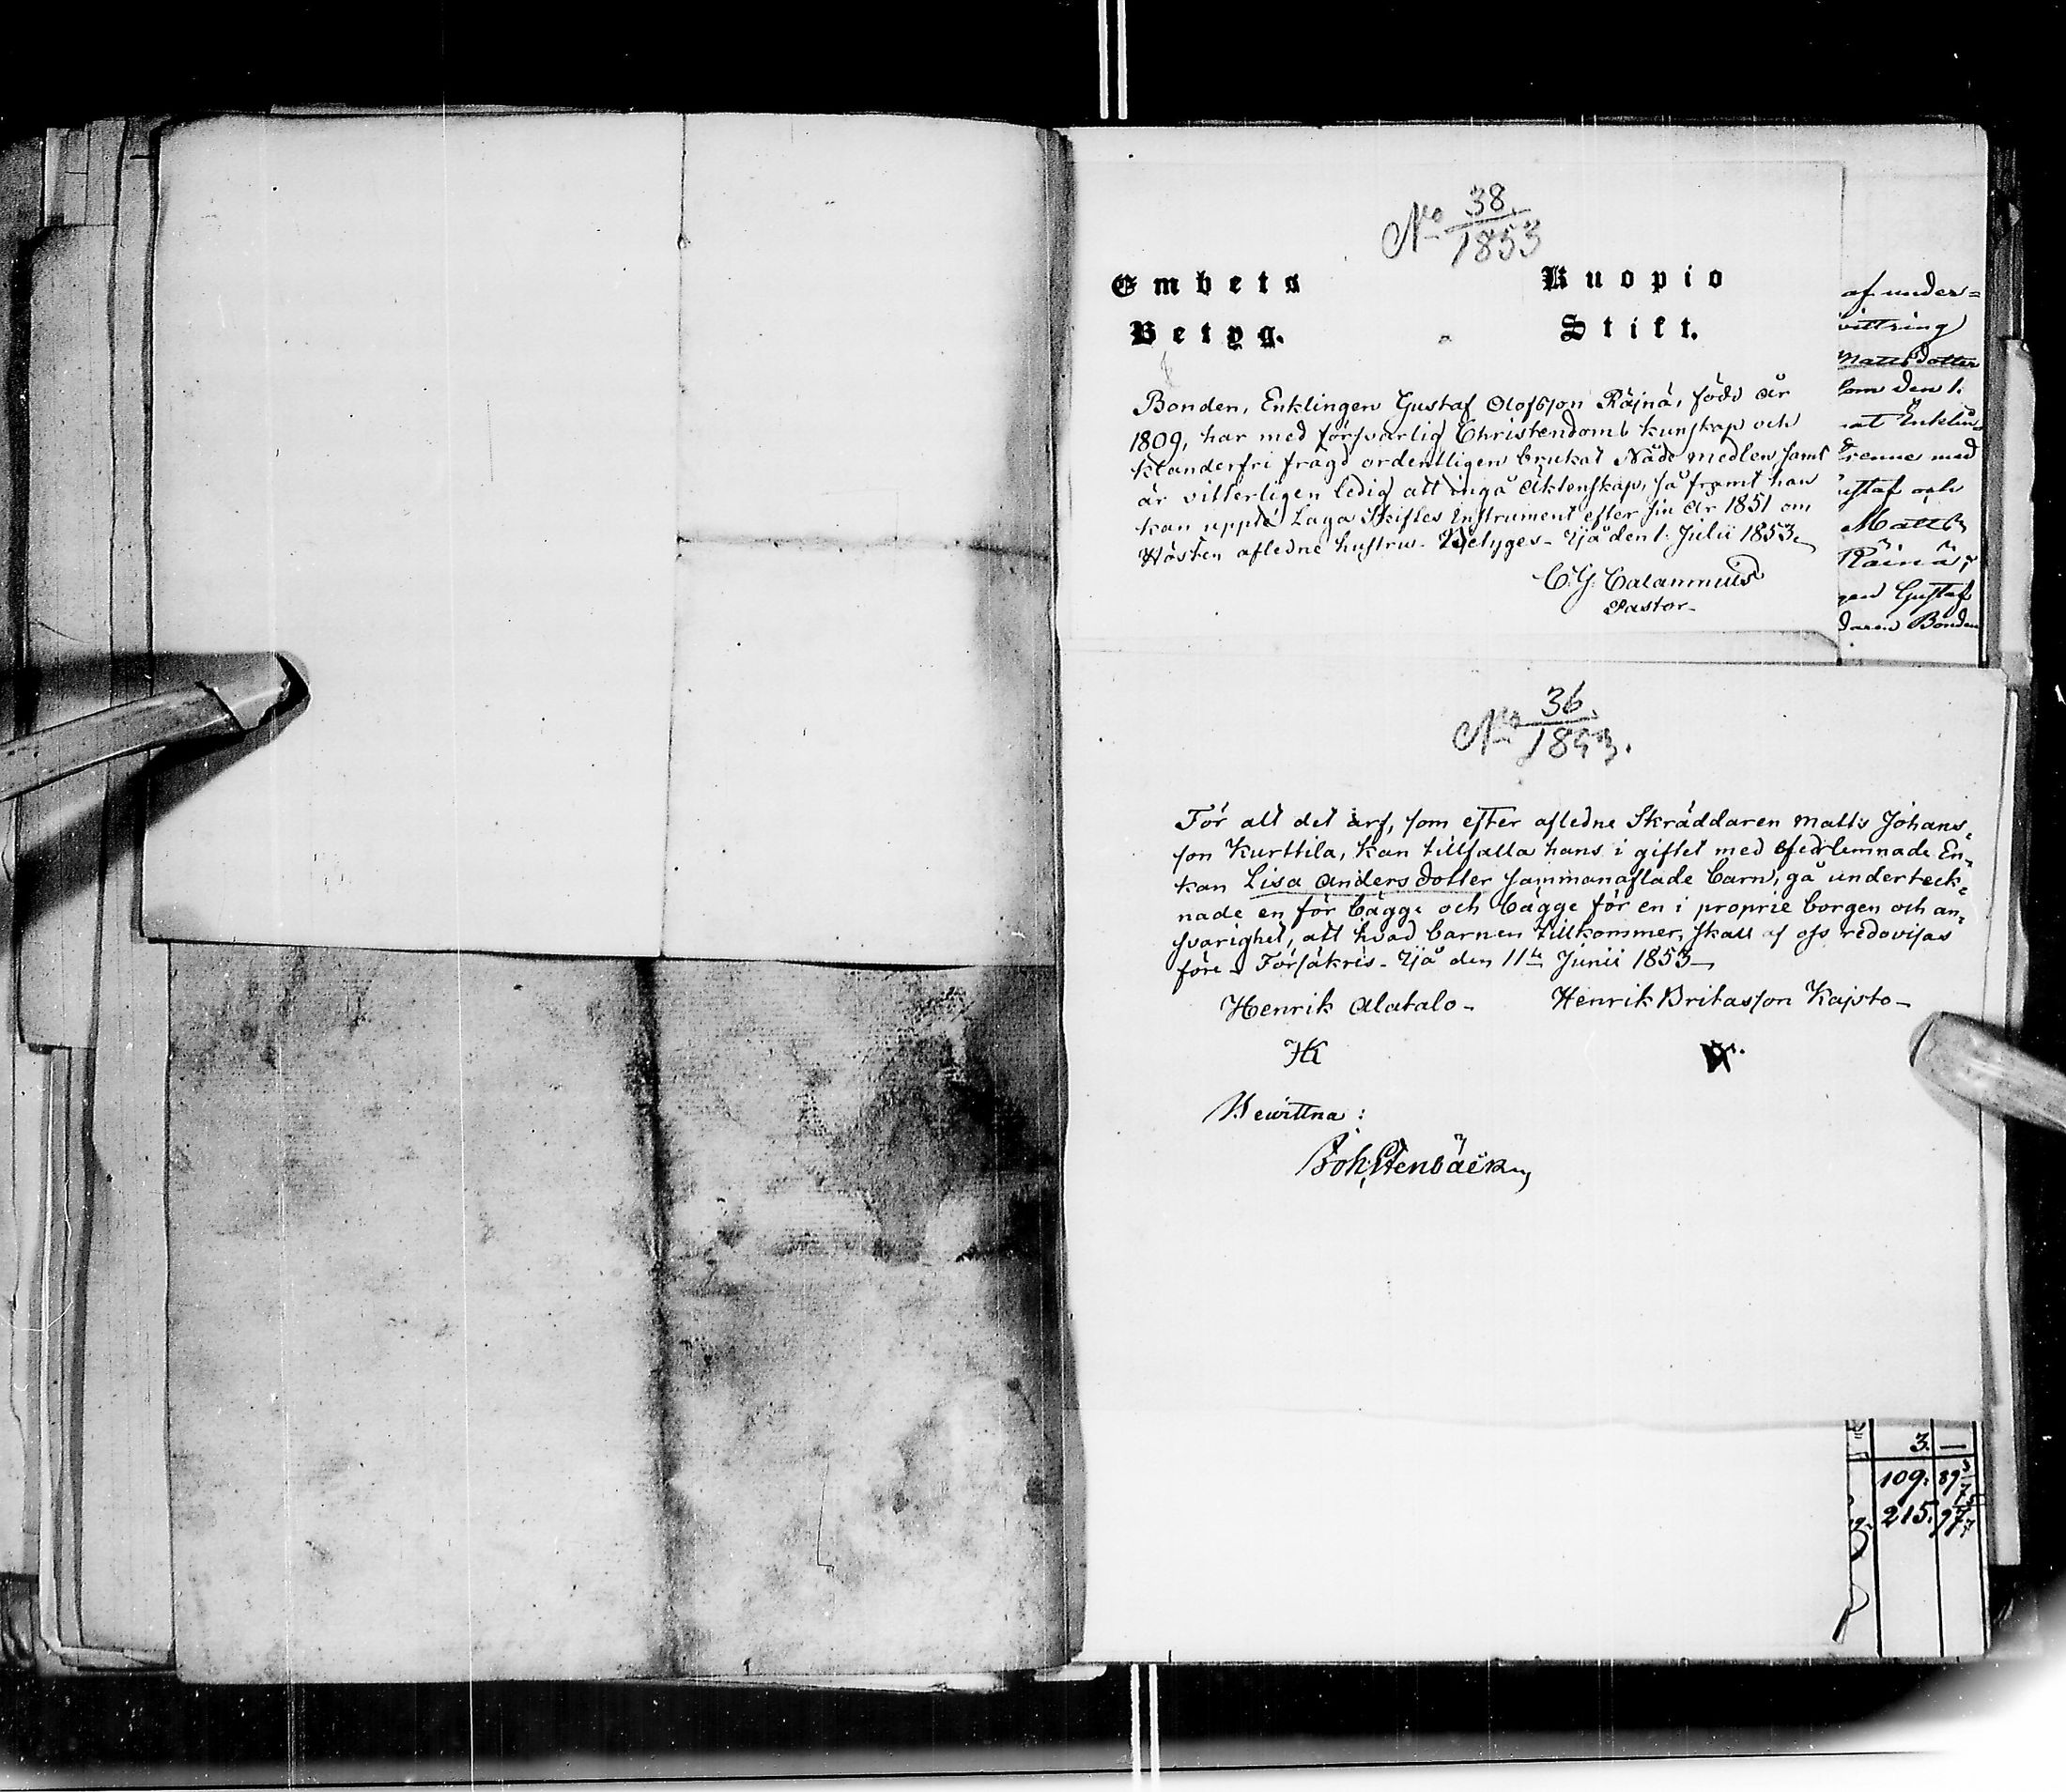 No 38./1853
Embets Betyg.
Kuopio Stift.
Bonden, Enklingen Gustaf Olofsson Räinä, född år
1809, har med försvarlig Christendoms kunskap och
klanderfri frägd ordentligen brukat Nådemedlen samt
är vitterligen ledig att ingå Äktenskap, så framt han
kan uppté Laga Skiftes Instrument efter sin år 1851 om
Hösten aflidne hustru. Betyges. Ijå den 1. Julii 1853.
C. G. Calamnius
Pastor.
af under=
vittring
Mattsdotter
som den 1.
Enklin=
med
Gustaf och
Matts
Räinä,
Gustaf
Bonden
No 36./1853.
För att det arf, som efter aflidne Skräddaren Matts Johans=
son Kurttila, kan tillfalla hans i giftet med efterlemnade En=
kan Lisa Andersdotter sammanaflade barn, gå underteck=
nade en för bägge och bägge för en i proprie borgen och an=
svarighet, att hvad barnen tillkommer, skall af oss redovisas
före. Försäkres. Ijå den 11te Junii 1853.
Henrik Alatalo. Henrik Britasson Kajsto.
HK
Bewittna:
Joh. Stenbäck
3. —
109. 89
215. 97